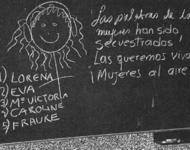 ¡Las palabras de las
mujeres han sido
secuestradas!
¡Las queremos vivas!
¡Mujeres al aire
1) LORENA
2) EVA
3) Mª VICTORIA
4) CAROLINE
5) FRAUKE